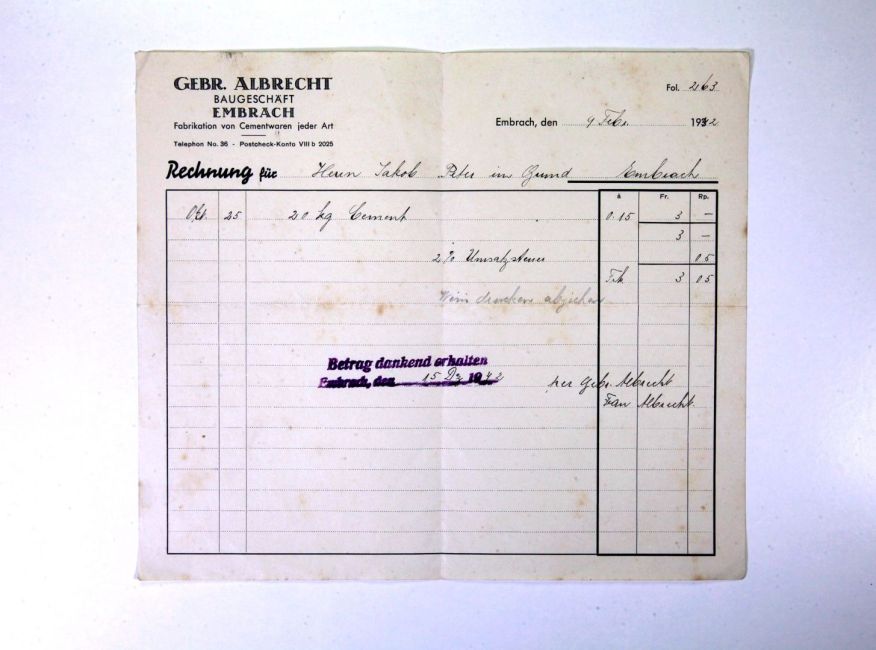 GEBR. ALBRECHT
BAUGESCHÄFT
EMBRACH
Fabrikation von Cementwaren jeder Art
Telephon No. 36 - Postcheck-Konto VIII b 2025
Fol. 2163
Embrach, den 9 Feb. 1942
Rechnung für Herrn Jakob Peter im Grund Embrach
à Fr. Rp.
Okt. 25 20 kg Cement 0.15 3 —
3 —
2% Umsatzsteuer 05
Frk. 3 05
abziehen
Betrag dankend erhalten
Embrach, den 15 Dz 1942
per Gebr. Albrecht
Frau Albrecht.